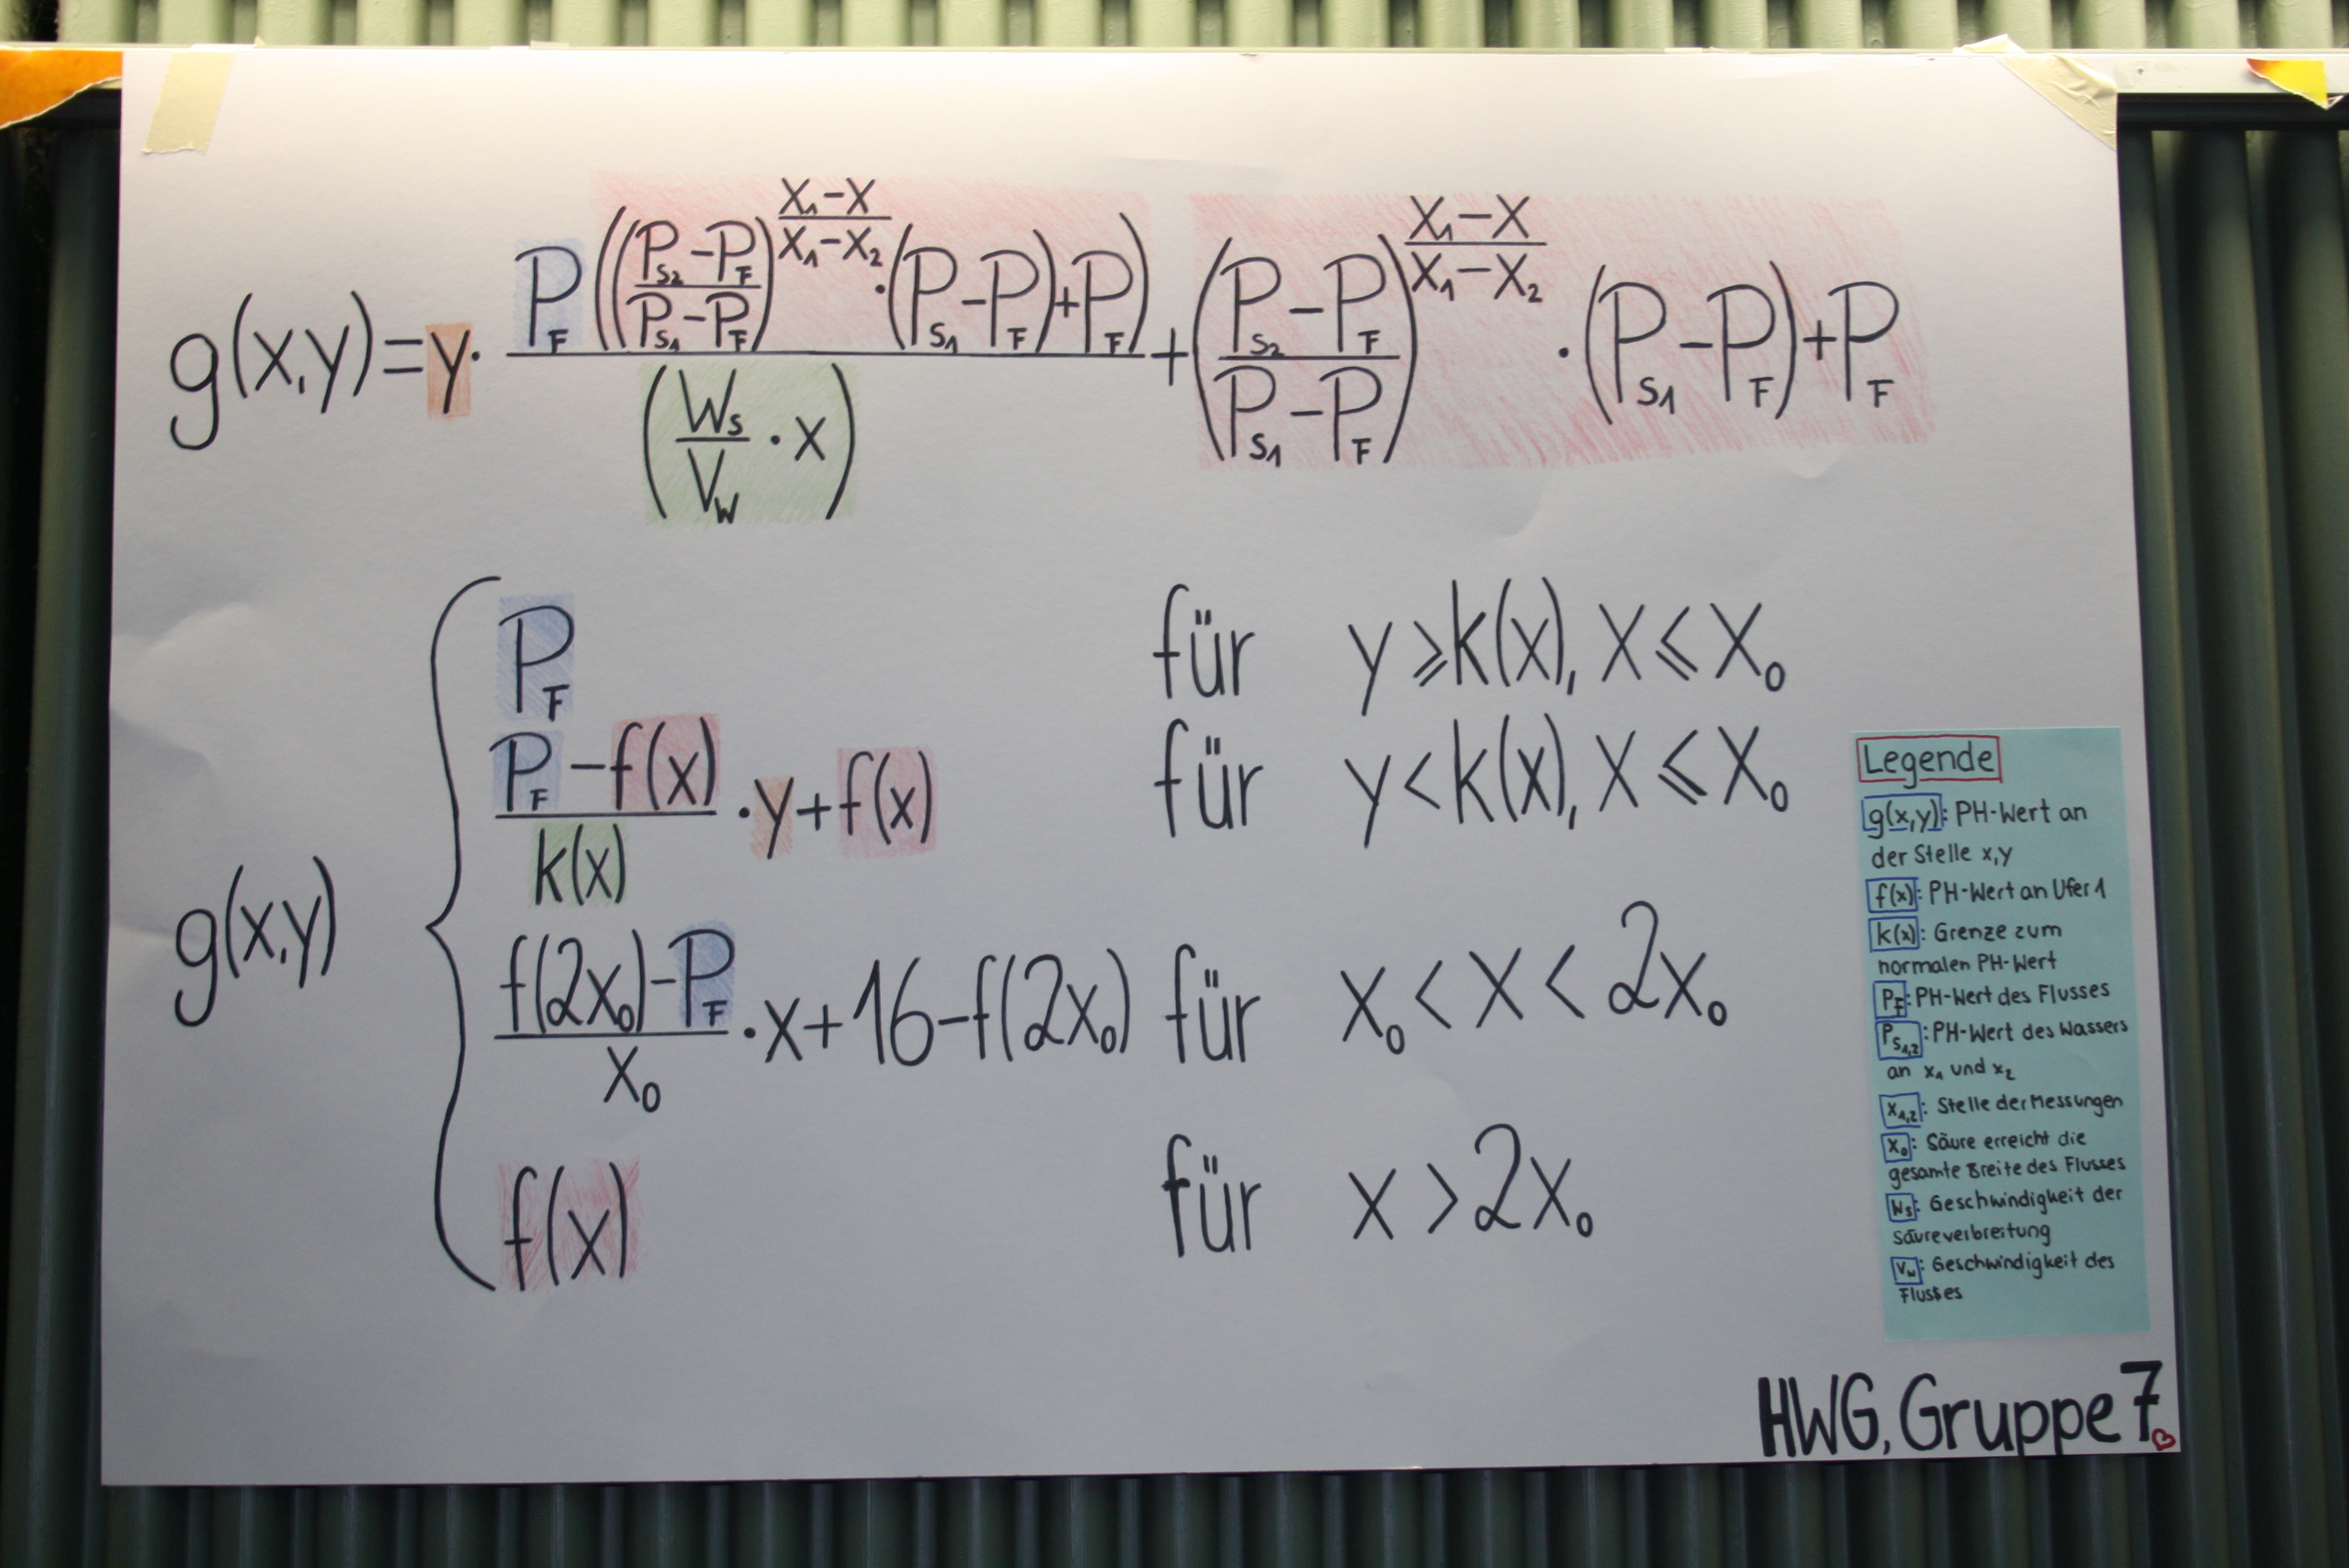 g(x,y)=y· (P_F ((P_S2−P_F)/(P_S1−P_F))^((X_1−X)/(X_1−X_2)) · (P_S1−P_F)+P_F) / (W_S/V_W · x) + ((P_S2−P_F)/(P_S1−P_F))^((X_1−X)/(X_1−X_2)) · (P_S1−P_F)+P_F
g(x,y) {
P_F für y ⩾ k(x), X ⩽ X_0
(P_F−f(x))/k(x) · y+f(x) für y < k(x), X ⩽ X_0
(f(2x_0)−P_F)/X_0 · x+16−f(2x_0) für X_0 < X < 2x_0
f(x) für x > 2x_0
Legende
g(x,y): PH-Wert an
der Stelle x,y
f(x): PH-Wert an Ufer 1
k(x): Grenze zum
normalen PH-Wert
P_F: PH-Wert des Flusses
P_S1,2: PH-Wert des Wassers
an x_1 und x_2
X_1,2: Stelle der Messungen
X_0: Säure erreicht die
gesamte Breite des Flusses
W_S: Geschwindigkeit der
säureverbreitung
V_W: Geschwindigkeit des
Flusses
HWG, Gruppe 7